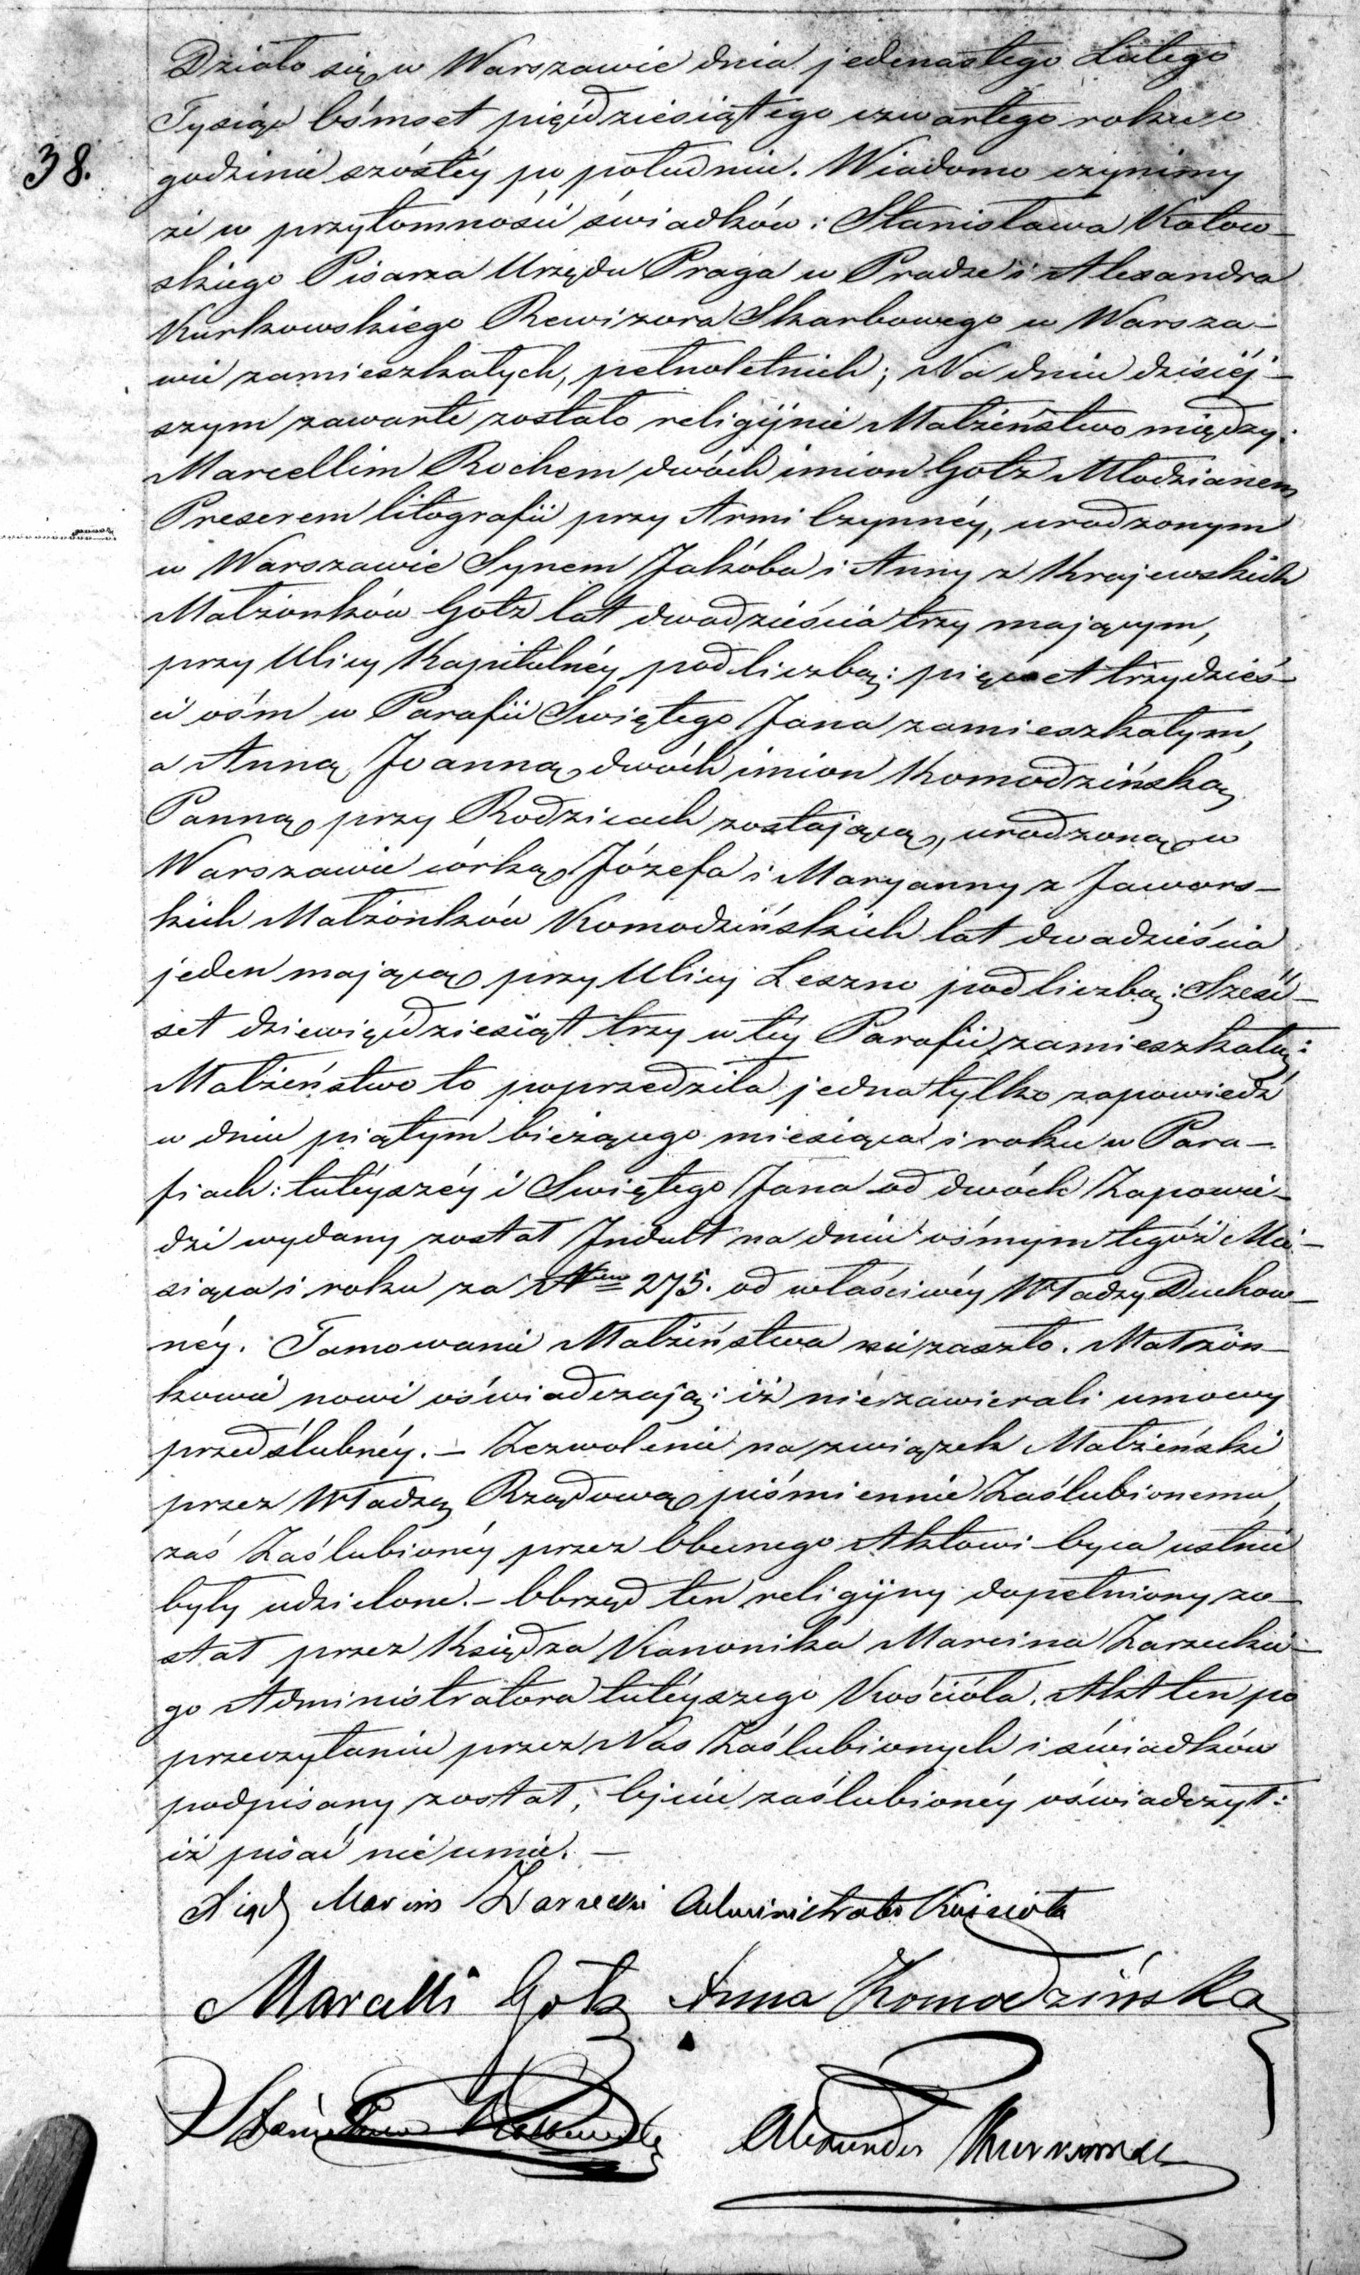 38.
Działo się w Warszawie dnia jedenastego Lutego
Tysiąc Ośmset pięćdziesiątego czwartego roku o
godzinie szóstéy po południu. Wiadomo czynimy
że w przytomności świadków: Stanisława Kotow-
skiego Pisarza Urzędu Praga w Pradze i Alexandra
Kurkowskiego Rewizora Skarbowego w Warsza-
wie zamieszkałych, pełnoletnich; Na dniu dzisiéj-
szym zawarte zostało religijnie Małżeństwo między:
Marcellim Rochem dwóch imion Gotz Młodzianem
Preserem litografii przy Armii Czynnéy, urodzonym
w Warszawie Synem Jakóba i Anny z Krajewskich
Małżonków Gotz lat dwadzieścia trzy mającym,
przy Ulicy Kapitulnéy pod liczbą: pięćset trzydzieś-
ci ośm w Parafii Swiętego Jana zamieszkałym,
a Anną Joanną dwóch imion Komodzińską
Panną przy Rodzicach zostającą, urodzoną w
Warszawie córką Józefa i Maryanny z Jawors-
kich Małżonków Komodzińskich lat dwadzieścia
jeden mającą przy Ulicy Leszno pod liczbą: Sześć-
set dziewięćdziesiąt trzy w téy Parafii zamieszkałą:
Małżeństwo to poprzedziła jedna tylko zapowiedź
w dniu piątym bieżącego miesiąca i roku w Para-
fiach: tutéyszéy i Swiętego Jana od dwóch Zapowie-
dzi wydany został Indult na dniu ósmym tegóż Mie-
siąca i roku za Nrem 275. od właściwéy Władzy Duchow-
néy. Tamowanie Małżeństwa nie zaszło. Małżon-
kowie nowi oświadczają: iż niezawierali umowy
przedślubnéy. – Zezwolenie na związek Małżeński
przez Władzę Rządową piśmiennie Zaślubionemu,
zaś Zaślubionéy przez Obecnego Aktowi Oyca ustnie
były udzielone. – Obrzęd ten religijny dopełniony zo-
stał przez Księdza Kanonika Marcina Zarzeckie-
go Administratora tutéyszego Kościoła. Akt ten po
przeczytaniu przez Nas Zaślubionych i świadków
podpisany został, Ojciec zaślubionéy oświadczył:
iż pisać nie umie. –
Xiądz Marcin Zarzecki Administrator Kościoła
Marcelli Gotz Anna Komodzińska
Stanisław Kotowski Alexander Kurkowski